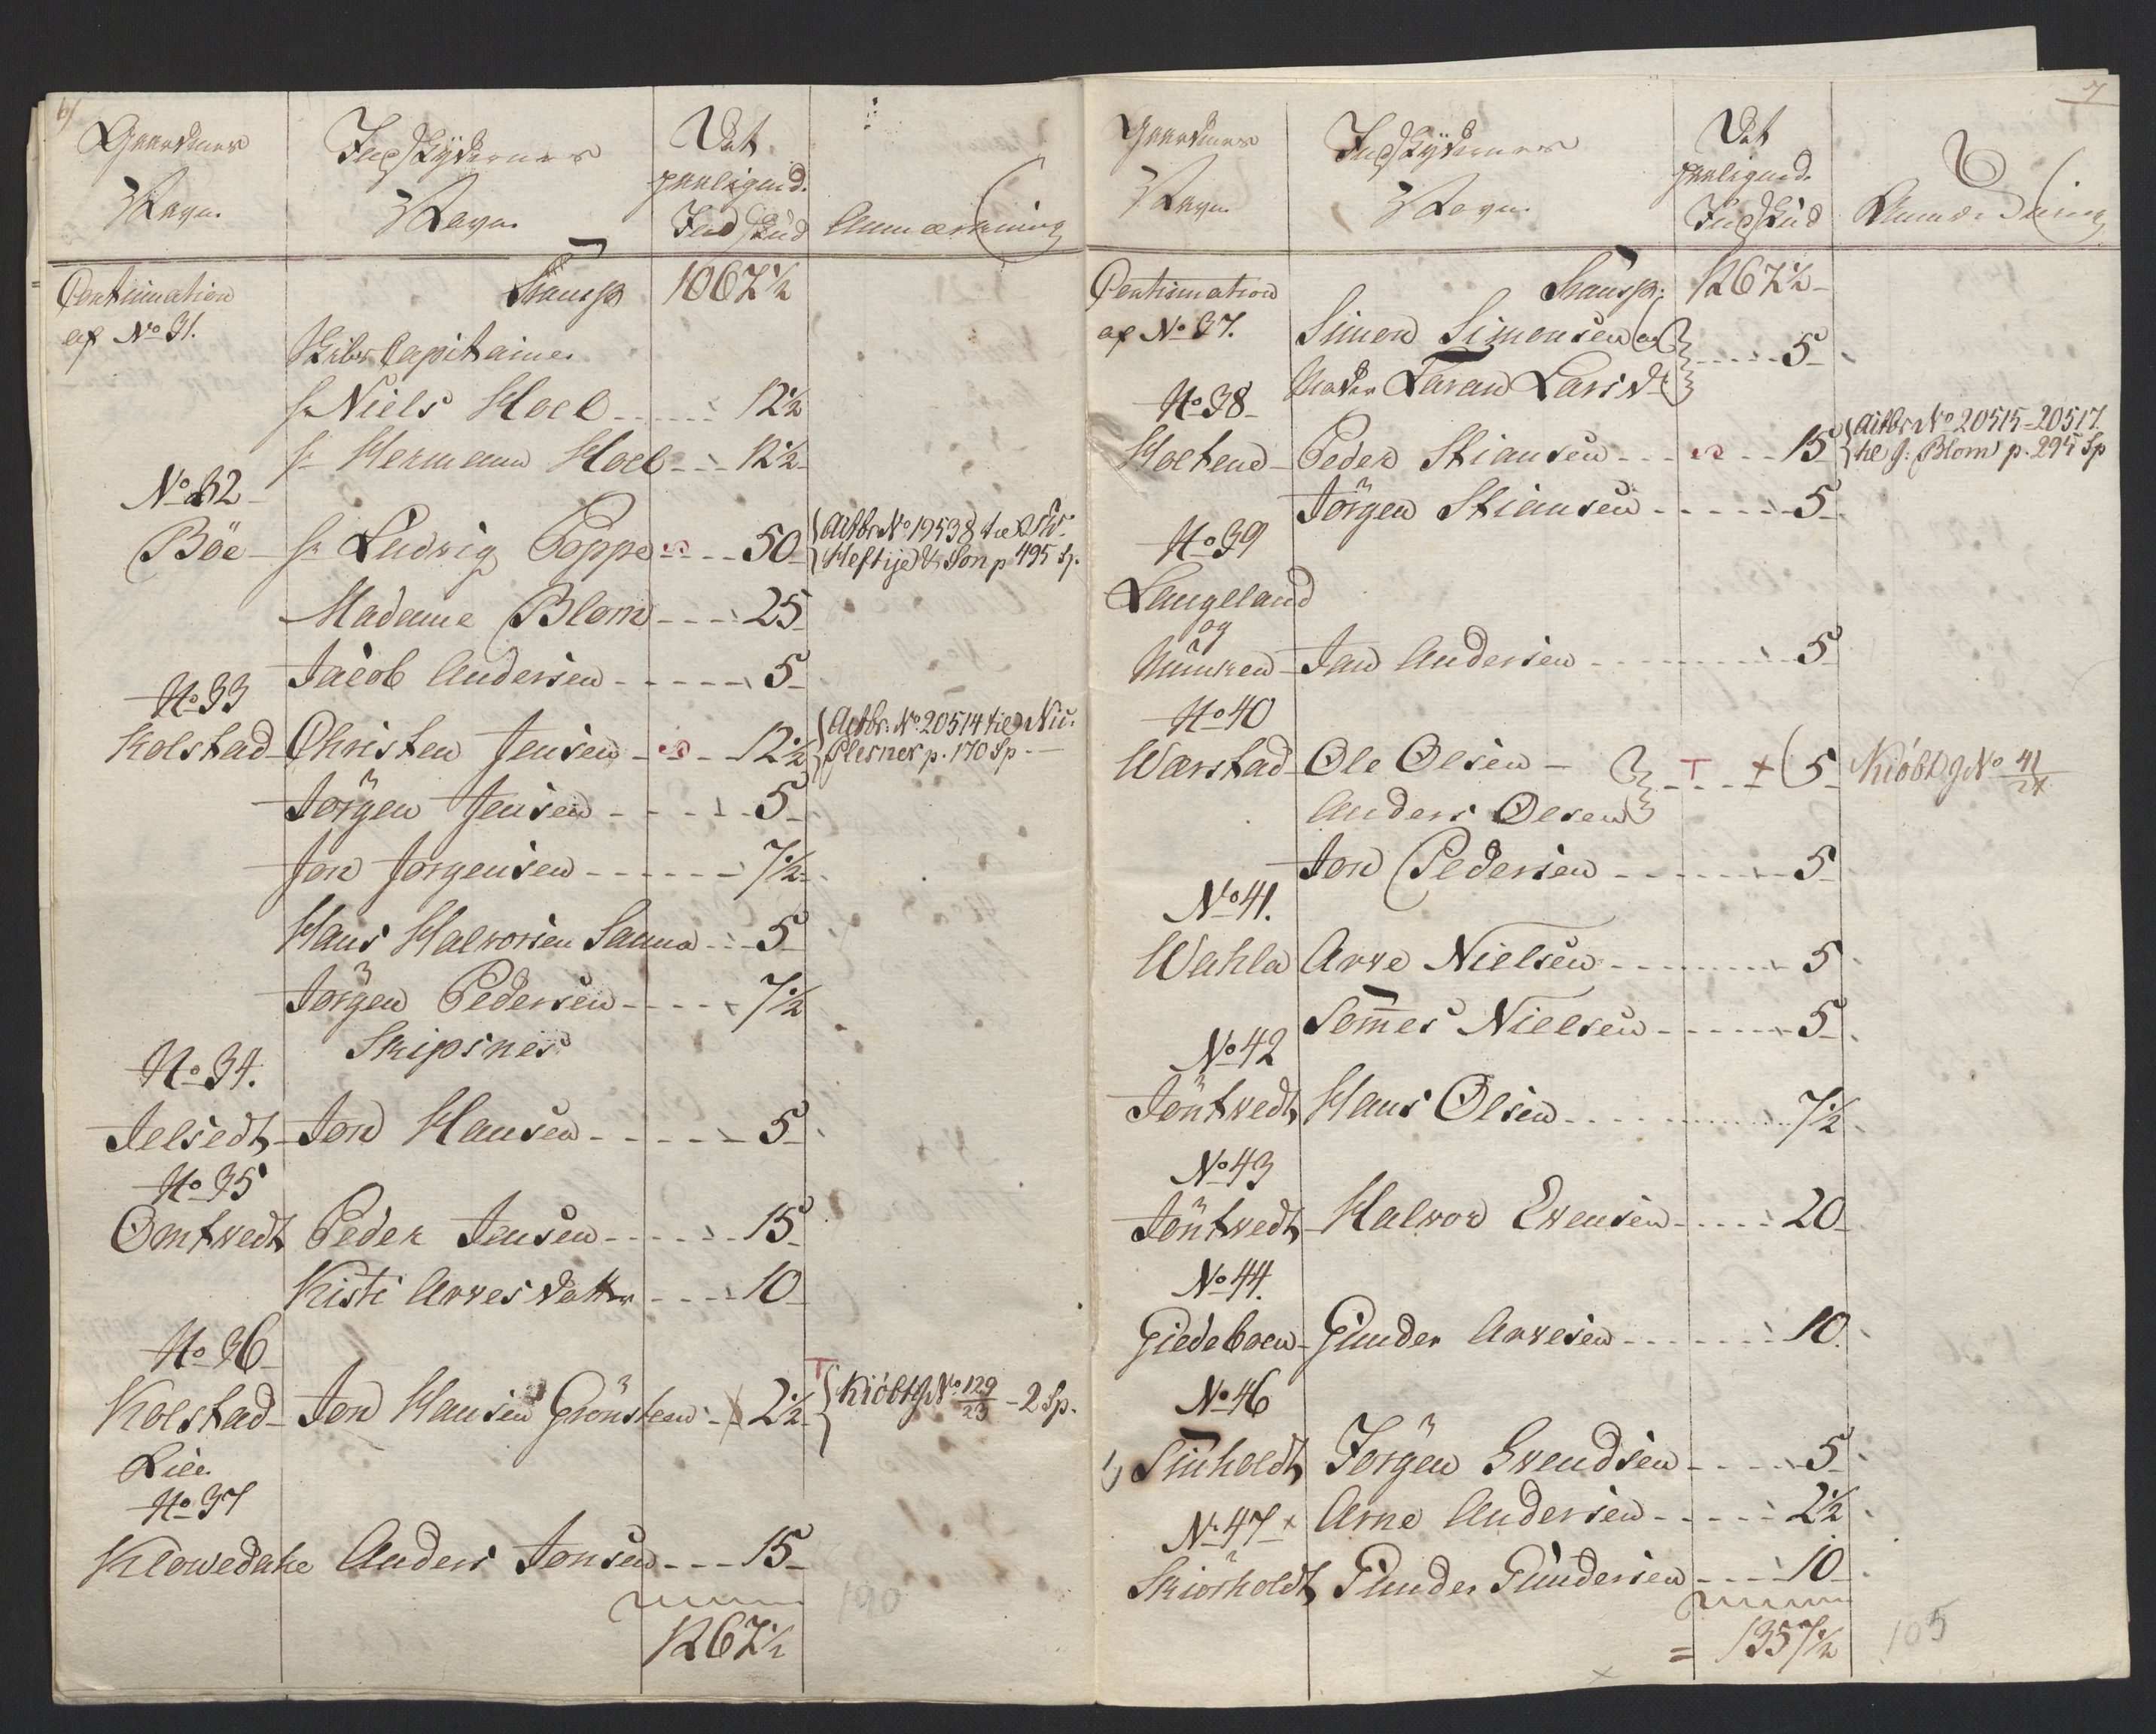 6)
Gaardenes
Navn.
Indskydernes
Navn.
Det
paaligned.
Indskud
Anmærkning
Continuation
af No 31.
Transp 1067½
Krigs Capitaine
Hr Niels Hoel - - - 12½
Hr Hermann Hoel - - - 12½
No 32
Böe - Hr Ludvig Poppe - - - 50 - Actbr No 19538 til
Heftije & Søn p 495 Sp.
Madame Blom - - - 25
Jacob Andersen - - - - - 5
No 33
Kolstad - Christen Jensen - - - 12½ Actbr. No. 20514 til Nic.
Plesner p. 170 Sp.
Jörgen Jensen - - - - 5
Jon Jörgensen - - - - - - 7½
Hans Halvorsen Sanna - - - 5
Jörgen Pedersen - - - - 7½
Skipsnes
No 34.
Jelsedt - Jon Hansen - - - - - 5
No 35
Omtvedt Peder Jensen - - - - - 15
Kisti Arvesdatter - - - 10
No 36
Kolstad - Jon Hansen Grönsteen - 2½ T Kiöbt g No 129/23 - 2 Sp.
Lie
No 37
Klovedahe Anders Jonsen - - - 15
1267½
190
7
Gaardenes
Navn
Indskydernes
Navn.
Det
paaligned.
Indskud
Anmærkning
Continuation
af No 37.
Transp. 1267½
Simon Simonsen og
Moder Taran Larsdt - - - 5
No 38
Holtene - Peder Stiansen - - - 15 Actbr No 20515 - 20517
til J. Blom p. 295 Sp
Jörgen Stiansen - - - - - 5
No 39
Laugeland
og
Munken - Jan Andersen - - - - - 5
No 40
Warstad - Ole Olsen - T + 5 Kiöbt g No 41/24
Anders Olsen
Jon Pedersen - - - - - 5
No 41.
Wahla Arve Nielsen - - - - - 5
Sommer Nielsen - - - - - 5
No 42
Töntvedt Hans Olsen - - - - 7½
No 43
Töntvedt - Halvor Evensen - - - - 20
No 44.
Giedeboen - Gunder Arvesen - - - - - 10.
No 46
1) Stuholdt Jörgen Svendsen - - - - 5
Arne Andersen - - - - - 2½
No 47 x
Skiörholdt Gunder Gundersen - - - 10
= 1357½
105